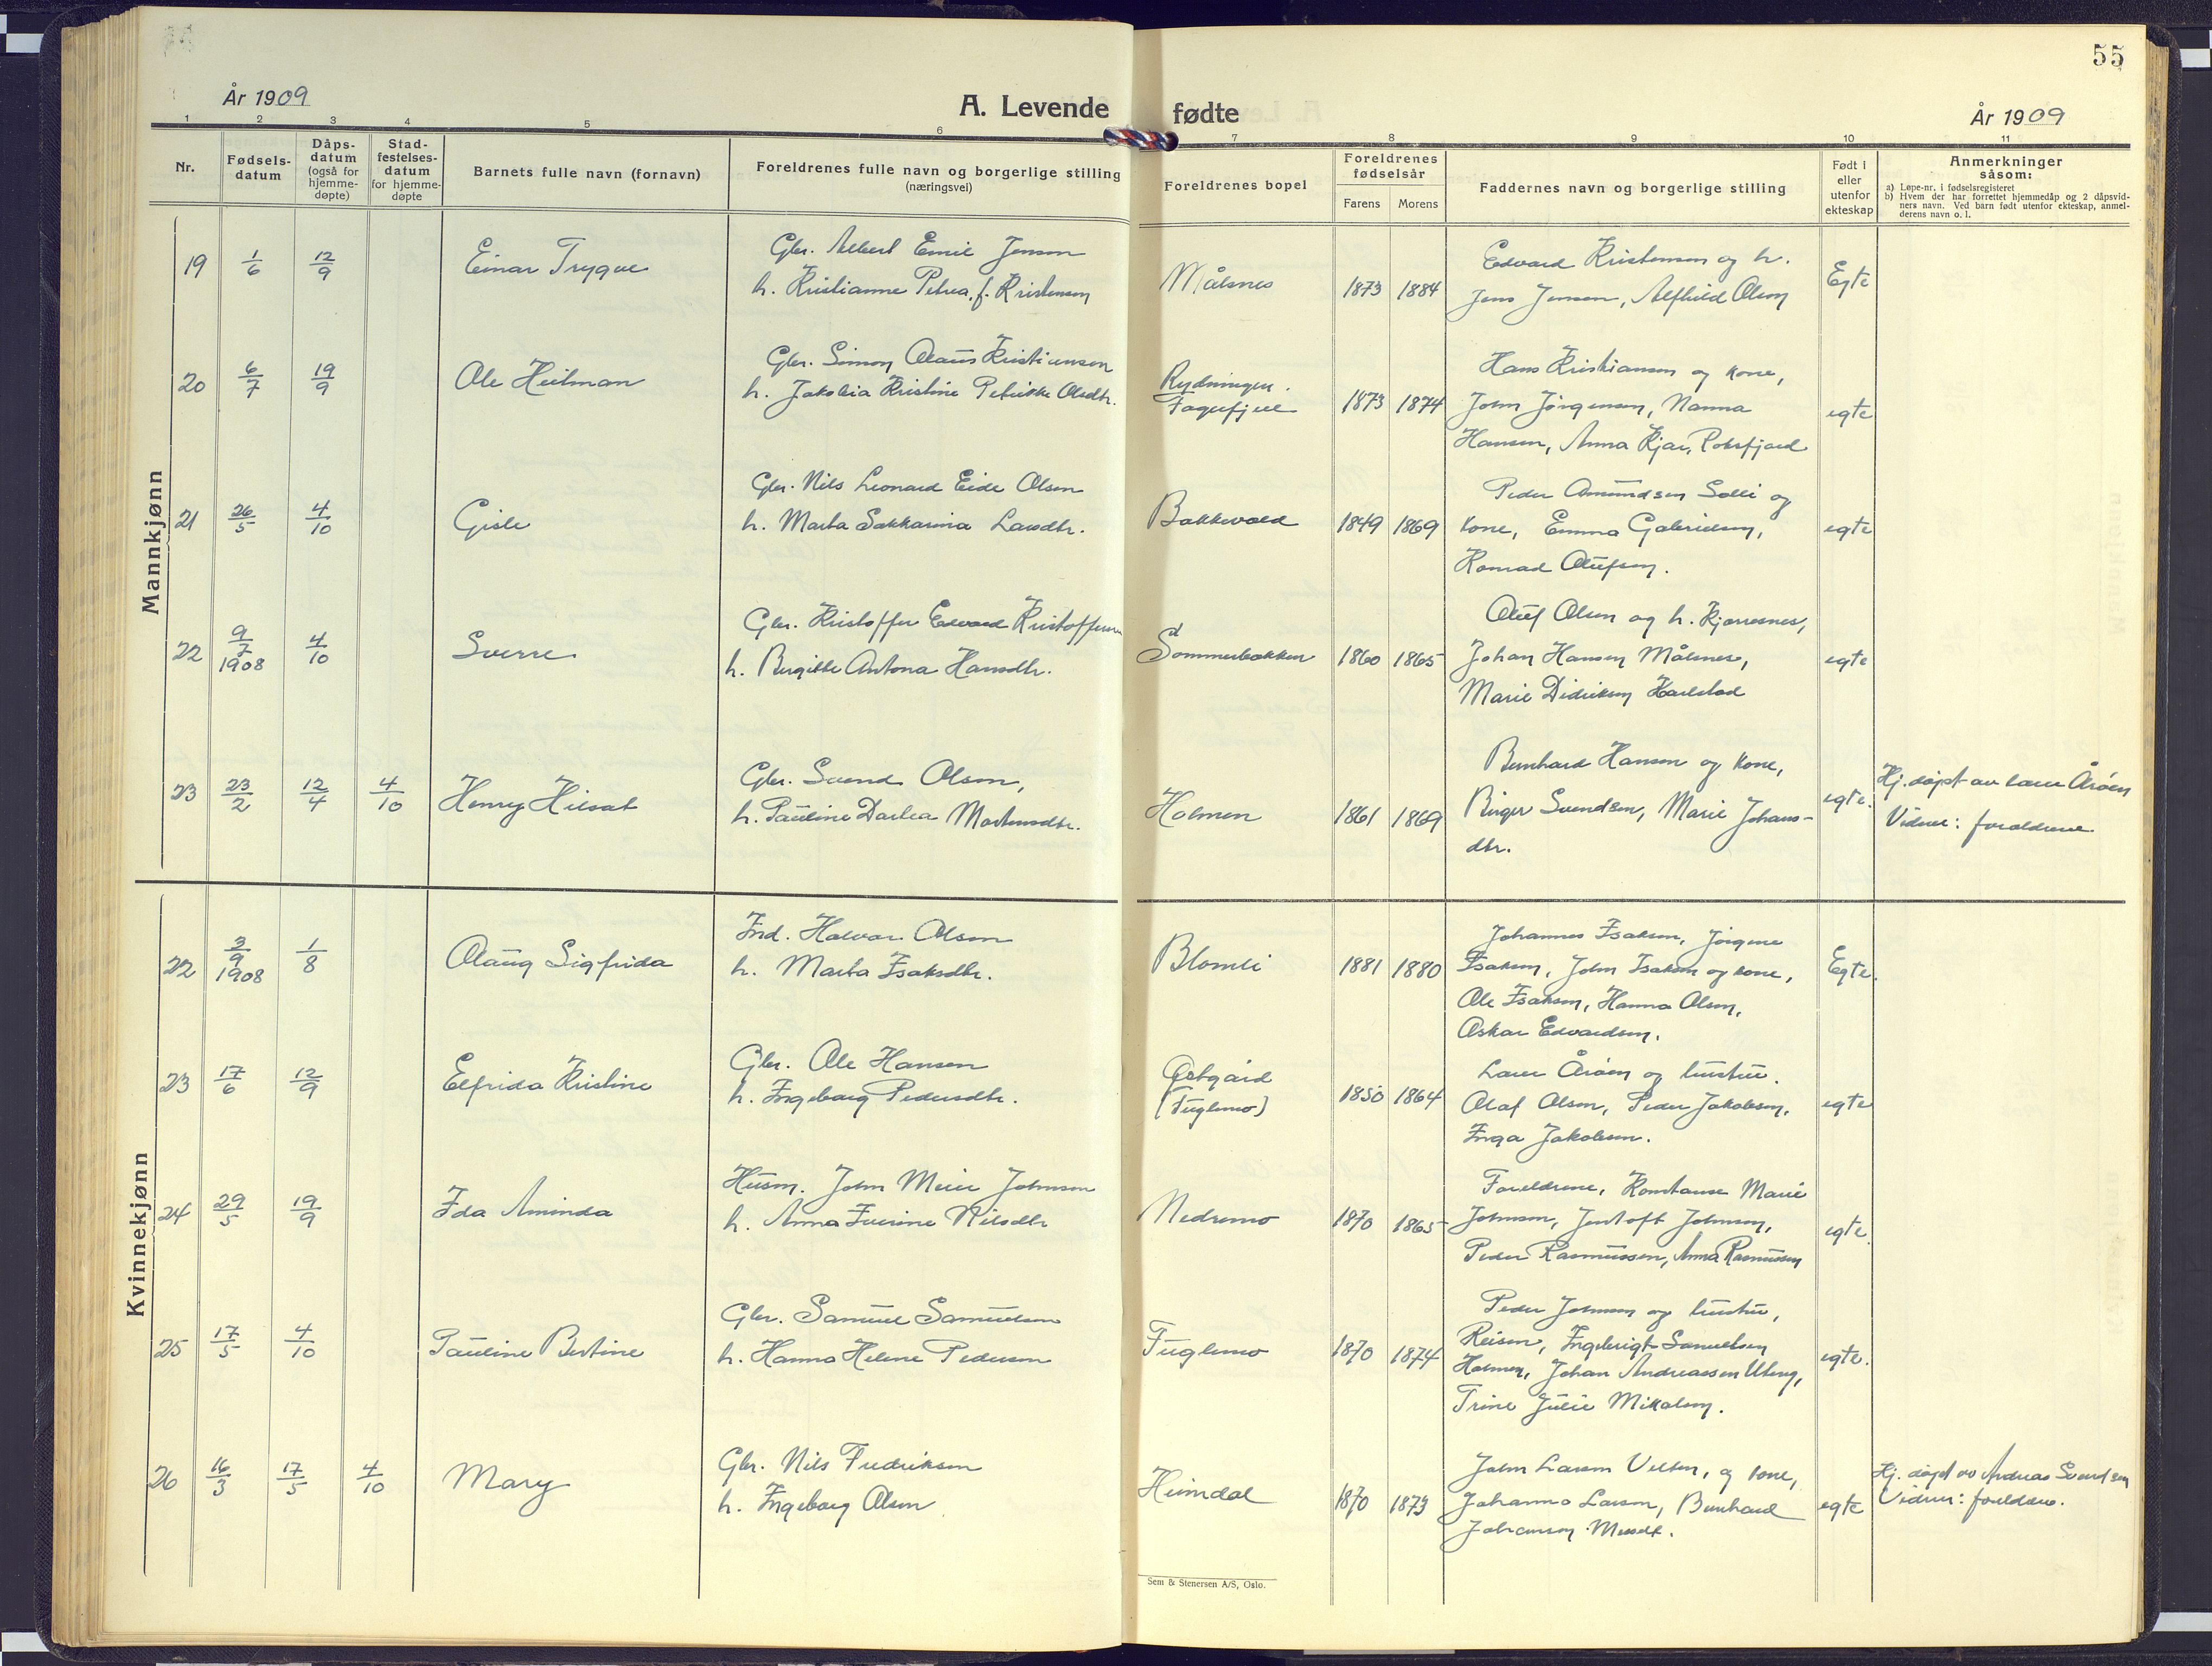 55
År 1909
A. Levende fødte
År 1909
1 2 3 4 5 6 7 8 9 10 11
Nr.
Fødsels-
datum
Dåps-
datum
(også for
hjemme-
døpte)
Stad-
festelses-
datum
for hjemme-
døpte
Barnets fulle navn (fornavn)
Foreldrenes fulle navn og borgerlige stilling
(næringsvei)
Foreldrenes bopel
Foreldrenes
fødselsår
Farens Morens
Faddernes navn og borgerlige stilling
Født i
eller
utenfor
ekteskap
Anmerkninger
såsom:
a) Løpe-nr. i fødselsregisteret
b) Hvem der har forrettet hjemmedåp og 2 dåpsvid-
ners navn. Ved barn født utenfor ekteskap, anmel-
derens navn o. l.
Mannkjønn
19 1/6 12/9 Einar Trygve
Gbr. Albert Emil Jensen
h. Kristianne Petrea, f. Kristensen
Målsnes 1873 1884
Edvard Kristensen og h.
Jens Jensen, Alfhild Olsen
Egte
20 6/7 19/9 Ole Heitman
Gbr. Simon Olaus Kristiansen
h. Jakobia Kristine Petrikke Olsdtr.
Rydningen.
Fagefjell 1873 1874
Hans Kristiansen og kone,
John Jörgensen, Nanna
Hansen, Anna Kjær, Rossfjord
egte
21 26/5 4/10 Gisle
Gbr. Nils Leonard Eide Olsen
h. Marta Sakkarina Larsdtr.
Bakkevold 1849 1869
Peder Amundsen Solli og
kone, Emma Gabrielsen,
Konrad Olufsen.
egte
22 9/7 1908 4/10 Sverre
Gbr. Kristoffer Edvard Kristoffersen
h. Birgitte Antona Hansdtr.
Sommerbakken 1860 1865
Oluf Olsen og h. Kjerresnes,
Johan Hansen Målsnes,
Marie Didriksen Karlstad
egte
23 23/2 12/4 4/10 Henry Hilsat
Gbr. Svend Olsen,
h. Pauline Dorlea Mortensdtr.
Holmen 1861 1869
Bernhard Hansen og kone,
Birger Svendsen, Marie Johans-
dtr.
egte.
Hj. døpt av lærer Årøen
Vidner: foreldrene
Kvinnekjønn
22 3/9 1908 1/8 Olaug Sigfrida
Ind. Halvar Olsen
h. Marta Isaksdtr.
Blomli 1881 1880
Johannes Isaksen, Jörgine
Isaksen, John Isaksen og kone,
Ole Isaksen, Hanna Olsen,
Oskar Edvardsen.
Egte.
23 17/6 12/9 Elfrida Kristine
Gbr. Ole Hansen
h. Ingeborg Pedersdtr.
Östgård
(Fuglemo) 1850 1864
Lærer Årøen og hustru.
Olaf Olsen, Peder Jakobsen,
Inga Jakobsen.
egte
24 29/5 19/9 Ida Aminda
Husm. John Meier Johnsen
h. Anna Iverine Nilsdtr
Nedremo 1870 1865
Foreldrene, Konstanse Marie
Johnsen, Jentoft Johnsen,
Peder Rasmussen, Anna Rasmussen
egte.
25 17/5 4/10 Pauline Bertine
Gbr. Samuel Samuelsen
h. Hanna Helene Pedersen
Fuglemo 1870 1874
Peder Johnsen og hustru,
Reisen, Ingebrigt Samuelsen
Holmen, Johan Andreassen Uberg,
Trine Julie Mikalsen.
egte.
26 16/3 17/5 4/10 Mary
Gbr. Nils Fredriksen
h. Ingeborg Olsen
Heimdal 1870 1873
John Larsen Velten, og kone,
Johanna Larsen, Bernhard
Johansen
egte
Hj. døpt av Andreas Svendsen
Vidner: foreldre.
Sem & Stenersen A/S, Oslo.